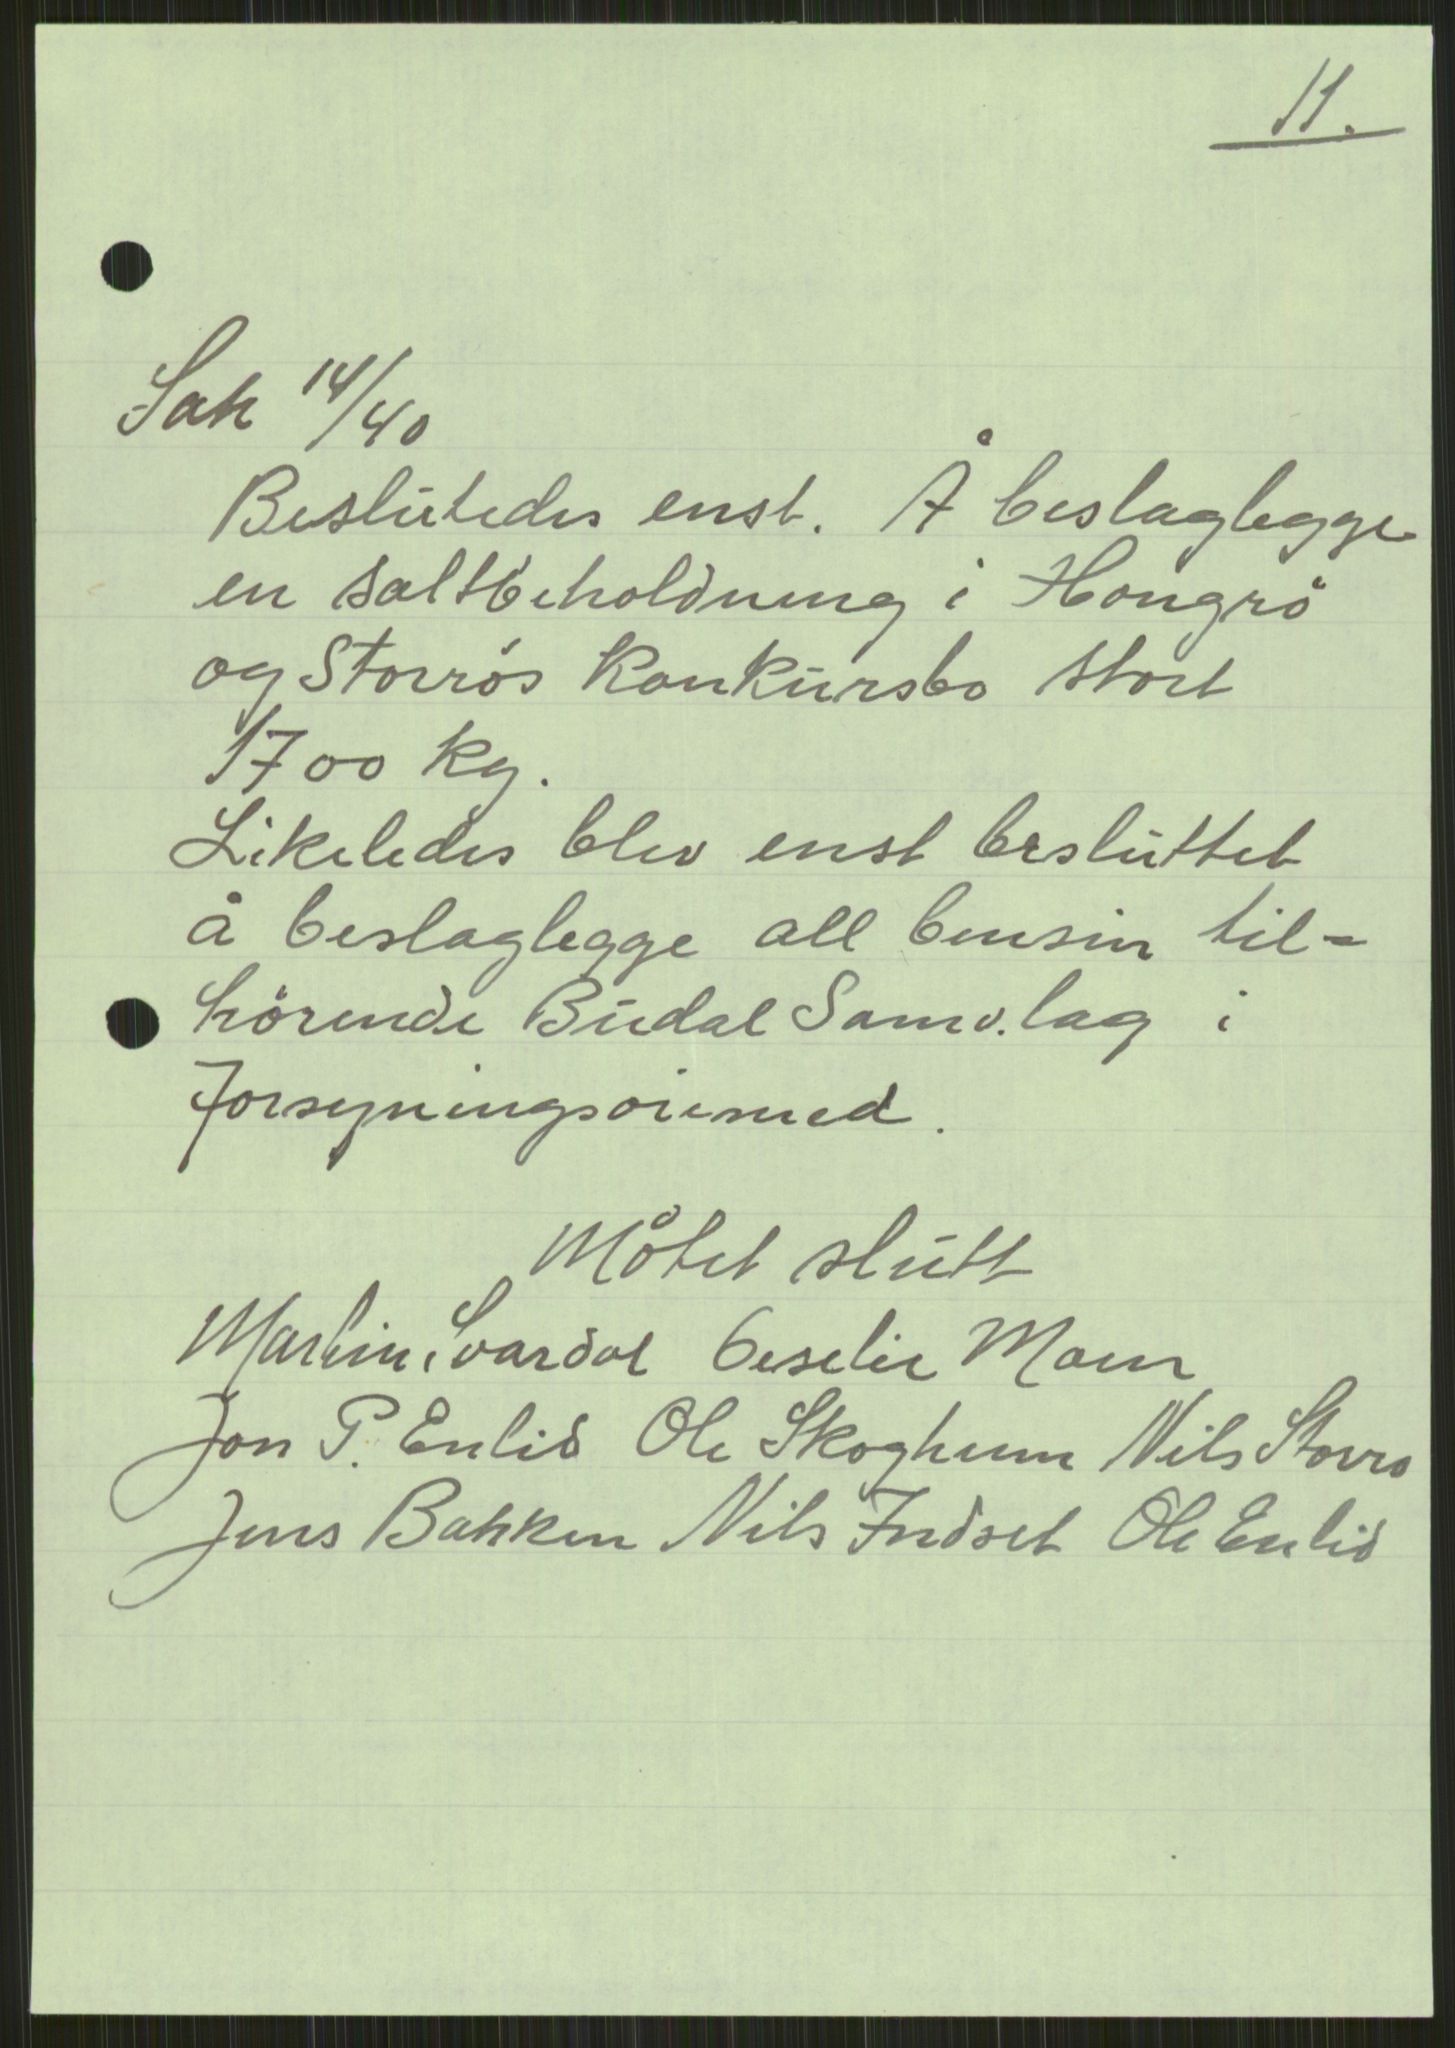 11.
Sak 14/40
Beslutedes enst. Å beslaglegge
en saltbeholdning i Hongrö
og Storrös Konkursbo stort
1700 kg.
Likeledes blev enst besluttet
å beslaglegge all bensin til-
hörende Budal Samv.lag i
forsyningsöiemed.
Mötet slutt
Martin Svardal Moen
Jon P. Enlid Ole Skoghum Nils Storrö
Jens Bakken Nils Indset Ole Enlid